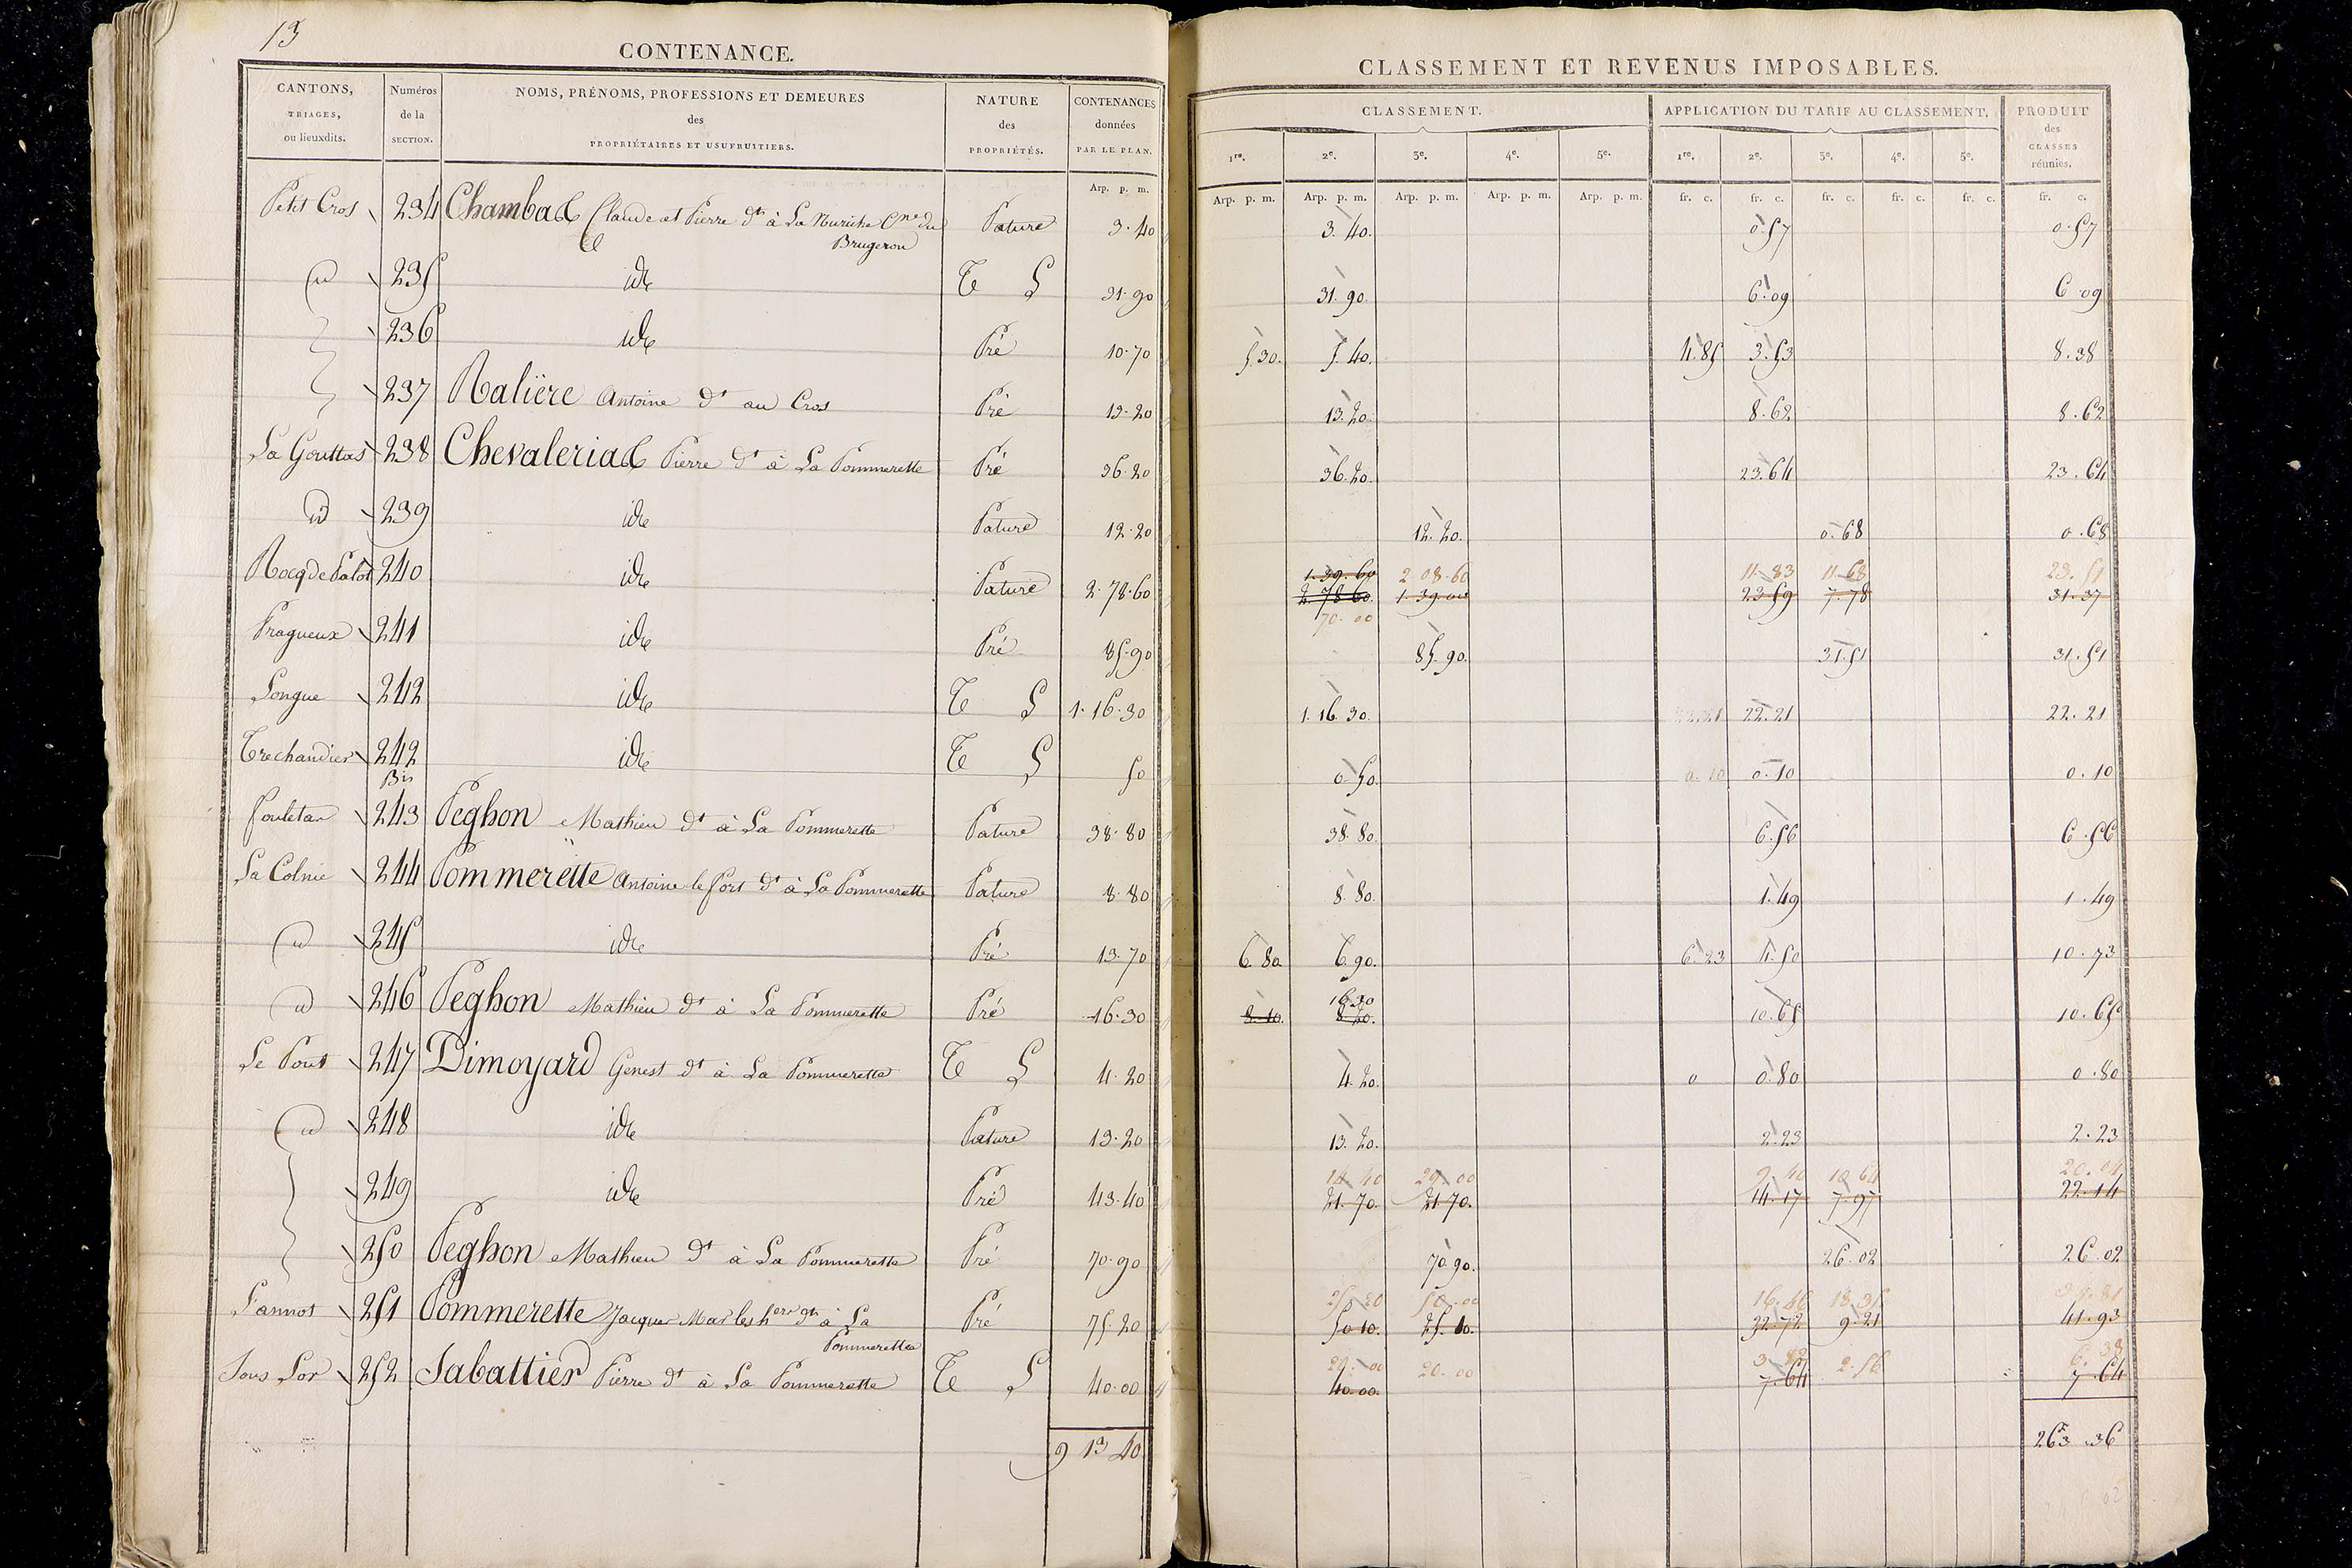 13
CONTENANCE.
CANTONS, TRIAGES, ou lieuxdits. Numéros de la SECTION. NOMS, PRÉNOMS, PROFESSIONS ET DEMEURES des PROPRIÉTAIRES ET USUFRUITIERS. NATURE des PROPRIÉTÉS. CONTENANCES données PAR LE PLAN.
Arp. p. m.
Petit Cros 234 Chambas Claude et Pierre dt à La Cne du Pature 3.40
Brugeron
id 235 ide T L 31.90
236 ide Pré 10.70
237 Ralière Antoine dt au Cros Pré 13.20
La Gouttas 238 Chevalerias Pierre dt à La Pommerette Pré 36.20
id 239 ide Pature 12.20
Rocq de Palot 240 ide Pature 2.78.60
Pragueux 241 ide Pré 85.90
Longue 242 ide T L 1.16.30
Trechandier 242 ide T L 50
Bis
Fouletar 243 Peghon Mathieu dt à La Pommerette Pature 38.80
La Colnie 244 Pommerette Antoine le fort dt à La Pommerette Pature 8.80
id 245 ide Pré 13.70
id 246 Peghon Mathieu dt à La Pommerette Pré 16.30
Le Pont 247 Dimoyard Genest dt à La Pommerette T L 4.20
id 248 ide Pature 13.20
249 ide Pré 43.40
250 Peghon Mathieu dt à La Pommerette Pré 70.90
251 Pommerette Jacques Mar les her dt à La Pré 75.20
Pommerette
Sous Lor 252 Sabattier Pierre dt à La Pommerette T L 40.00
9 13 40
CLASSEMENT ET REVENUS IMPOSABLES.
CLASSEMENT. APPLICATION DU TARIF AU CLASSEMENT. PRODUIT des CLASSES réunies.
1re. 2e. 3e. 4e. 5e. 1re. 2e. 3e. 4e. 5e.
Arp. p. m. Arp. p. m. Arp. p. m. Arp. p. m. Arp. p. m. fr. c. fr. c. fr. c. fr. c. fr. c. fr. c.
3.40. 0.57 0.57
31.90. 6.09 6.09
5.30. 5.40. 4.85 3.53 8.38
13.20. 8.62 8.62
36.20. 23.64 23.64
12.20. 0.68 0.68
1.39.60 2.08.60 11.83 11.68 23.51
2.78.60. 1.39.00 23.59 7.78 31.37
70.00
85.90. 31.51 31.51
1.16.30. 22.21 22.21 22.21
0.50. 0.10 0.10 0.10
38.80. 6.56 6.56
8.80. 1.49 1.49
6.80. 6.90. 6.23 4.50 10.73
16.30
8.10. 8.20. 10.65 10.65
4.20. 0 0.80 0.80
13.20. 2.23 2.23
14.40 29.00 9.40 10.64 20.04
21.70. 21.70. 14.17 7.97 22.14
70.90. 26.02 26.02
25.20 50.00 16.46 18.35
50.10. 25.10. 32.72 9.21 41.93
20.00 20.00 3.82 2.56 6.38
40.00. 7.64 7.64
263.36